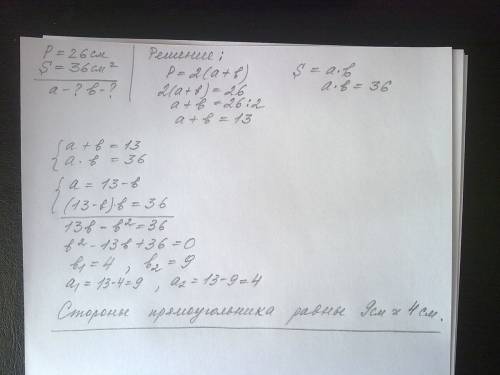 P = 26 см
S = 36 см²
a - ? в - ?
Решение;
P = 2(a + в)
2(a + в) = 26
a + в = 26 : 2
a + в = 13
S = a · в
a · в = 36
{ a + в = 13
{ a · в = 36
{ a = 13 - в
{ (13 - в) · в = 36
13в - в² = 36
в² - 13в + 36 = 0
в₁ = 4 , в₂ = 9
a₁ = 13 - 4 = 9 , a₂ = 13 - 9 = 4
Стороны прямоугольника равны 9см и 4см.